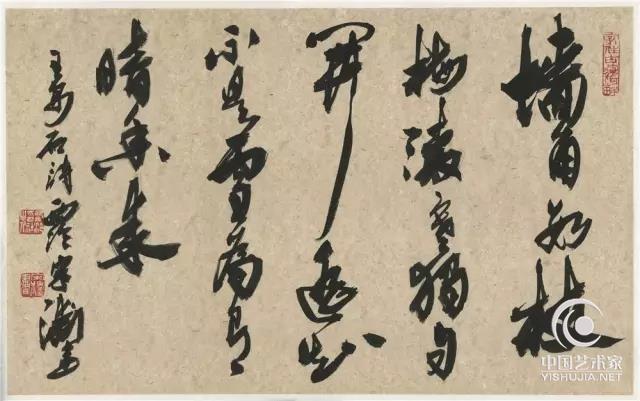 墙角数枝
梅凌寒獨自
開遥知
不是雪為有
暗香来
王安石诗
中国艺术家
YISHUJIA.NET